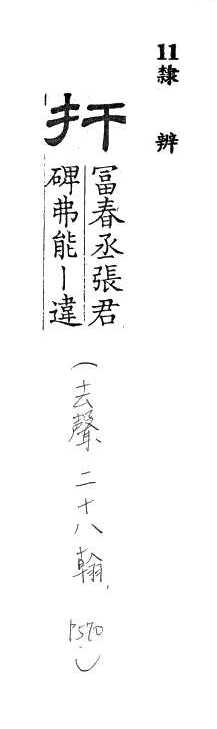 11隸辨
扞
冨春丞張君
碑弗能丨違
(去聲二十八翰, P570.)